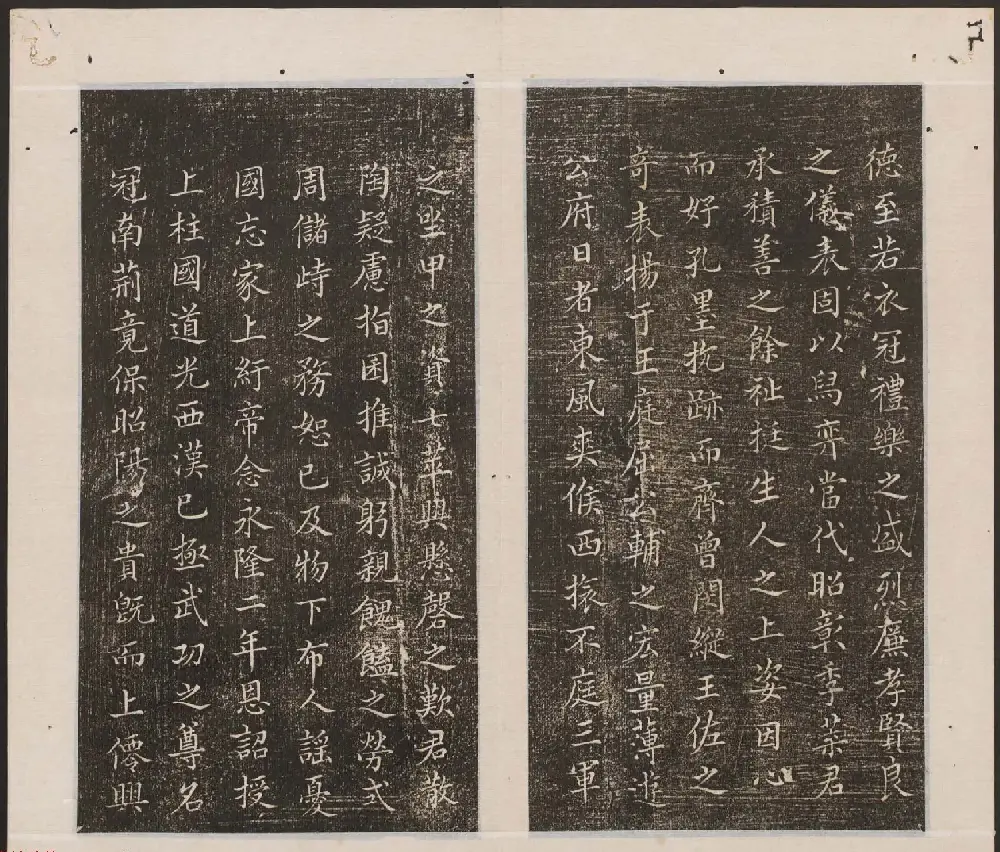 德至若衣冠禮樂之盛烈廉孝賢良
之儀表固以舄弈當代昭彰季葉君
承積善之餘祉挺生人之上姿因心
而好孔墨抗跡而齊曾閔縱王佐之
奇表揚于王庭負公輔之宏量薄遊
公府日者東風爽候西掖不庭三軍
之坐甲之資七萃興懸磬之歎君散
陶疑慮拍囷推誠躬親餽饁之勞式
周儲峙之務恕已及物下布人謠憂
國忘家上紆帝念永隆二年恩詔授
上柱國道光西漢已極武功之尊名
冠南荊竟保昭陽之貴旣而上僊興